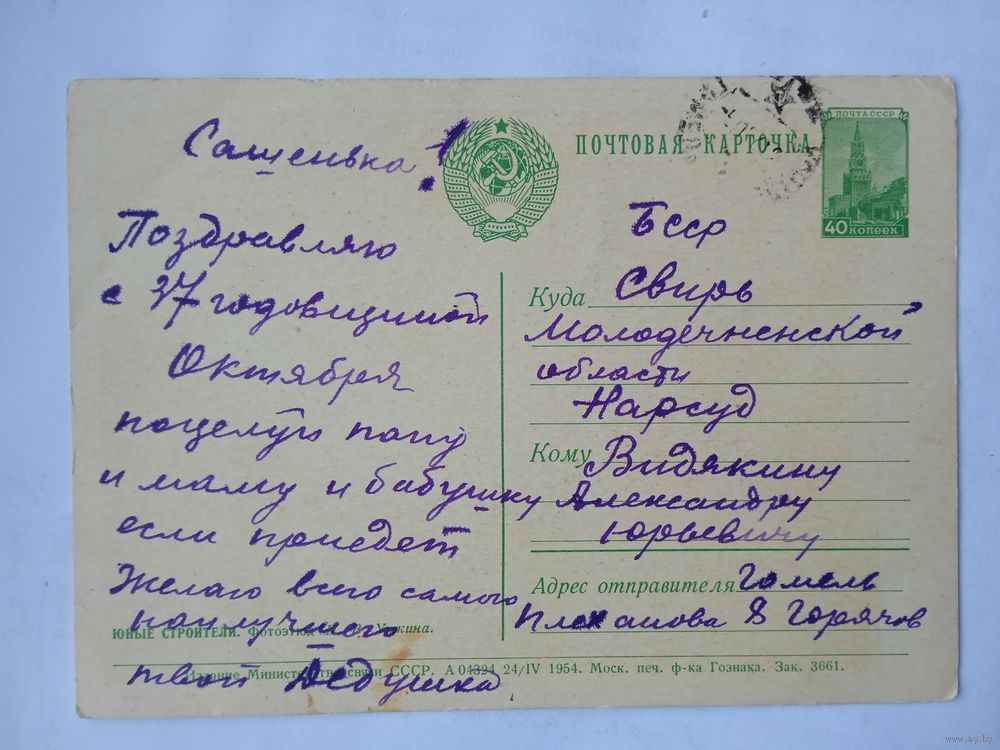 Сашенька!
Поздравляю
с 37 годовщиной
Октября
поцелуй папу
и маму и бабушку
если приедет
Желаю всего самого
наилучшего
твой Дедушка
ПОЧТОВАЯ КАРТОЧКА
ПОЧТА СССР
40 КОПЕЕК
БССР
Куда Свирь
Молодечненской
области
Нарсуд
Кому Видякину
Александру
Юрьевичу
Адрес отправителя Гомель
Плеханова 8 Горячов
ЮНЫЕ СТРОИТЕЛИ. Фотоэтюд
Издание Министерства связи СССР. А 04324 24/IV 1954. Моск. печ. ф-ка Гознака. Зак. 3661.
www.ay.by